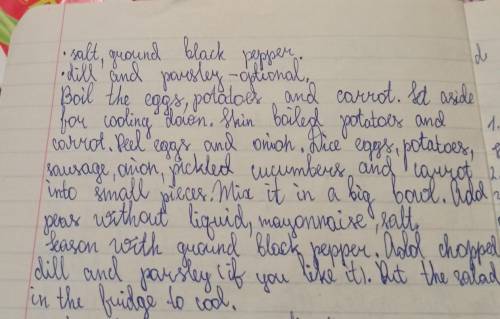 · salt, ground black pepper
· dill and parsley - optional.
Boil the eggs, potatoes and carrot. Set aside
for cooling down. Skin boiled potatoes and
carrot. Peel eggs and onion. Dice eggs, potatoes,
sausage, onion, pickled cucumbers and carrot
into small pieces. Mix it in a big bowl. Add
peas without liquid, mayonnaise, salt.
Season with ground black pepper. Add chopped
dill and parsley (if you like it). Put the salad
in the fridge to cool.
d
1.
2.